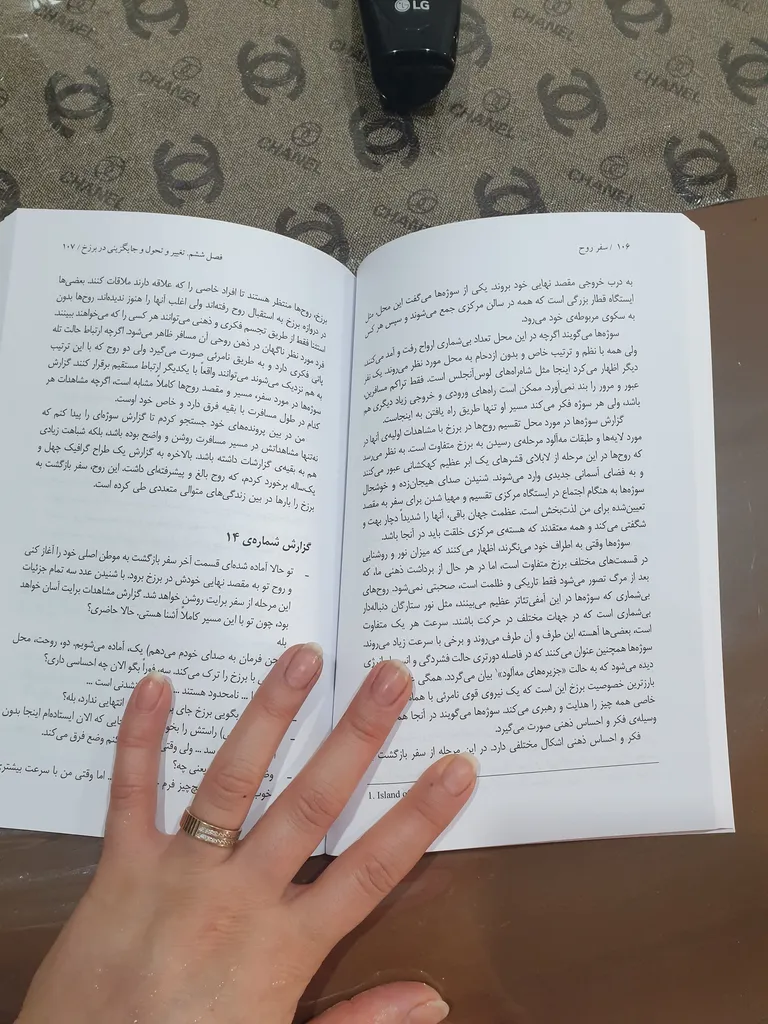 LG
CHANEL
CHANEL
CHANEL
CHANEL
CHANEL
CHANEL
CHANEL
۱۰۶ / سفر روح
به درب خروجی مقصد نهایی خود بروند. یکی از سوژه‌ها می‌گفت این محل مثل
ایستگاه قطار بزرگی است که همه در سالن مرکزی جمع می‌شوند و سپس هر کس
به سکوی مربوطه‌ی خود می‌رود.
سوژه‌ها می‌گویند اگرچه در این محل تعداد بی‌شماری ارواح رفت و آمد می‌کنند
ولی همه با نظم و ترتیب خاص و بدون ازدحام به محل مورد نظر می‌روند. یک نفر
دیگر اظهار می‌کرد اینجا مثل شاهراه‌های لوس‌آنجلس است. فقط تراکم مسافرین
عبور و مرور را بند نمی‌آورد. ممکن است راه‌های ورودی و خروجی زیاد دیگری هم
باشد، ولی هر سوژه فکر می‌کند مسیر او تنها طریق راه یافتن به اینجاست.
گزارش سوژه‌ها در مورد محل تقسیم روح‌ها در برزخ با مشاهدات اولیه‌ی آنها در
مورد لایه‌ها و طبقات مه‌آلود مرحله‌ی رسیدن به برزخ متفاوت است. به نظر می‌رسد
که روح‌ها در این مرحله از لابلای قشرهای یک ابر عظیم کهکشانی عبور می‌کنند
و به فضای آسمانی جدیدی وارد می‌شوند. شنیدن صدای هیجان‌زده و خوشحال
سوژه‌ها به هنگام اجتماع در ایستگاه مرکزی تقسیم و مهیا شدن برای سفر به مقصد
تعیین‌شده برای من لذت‌بخش است. عظمت جهان باقی، آنها را شدیداً دچار بهت و
شگفتی می‌کند و همه معتقدند که هسته‌ی مرکزی خلقت باید در آنجا باشد.
سوژه‌ها وقتی به اطراف خود می‌نگرند، اظهار می‌کنند که میزان نور و روشنایی
در قسمت‌های مختلف برزخ متفاوت است، اما در هر حال از برداشت ذهنی ما، که
بعد از مرگ تصور می‌شود فقط تاریکی و ظلمت است، صحبتی نمی‌شود. روح‌های
بی‌شماری که سوژه‌ها در این آمفی‌تئاتر عظیم می‌بینند، مثل نور ستارگان دنباله‌دار
بی‌شماری است که در جهات مختلف در حرکت باشند. سرعت هر یک متفاوت
است، بعضی‌ها آهسته این طرف و آن طرف می‌روند و برخی با سرعت زیاد می‌روند
سوژه‌ها همچنین عنوان می‌کنند که در فاصله دورتری حالت فشردگی و انرژی
دیده می‌شود که به حالت «جزیره‌های مه‌آلود»۱ بیان می‌گردد. همگی
بارزترین خصوصیت برزخ این است که یک نیروی قوی نامرئی با
خاصی همه چیز را هدایت و رهبری می‌کند. سوژه‌ها می‌گویند در آنجا
وسیله‌ی فکر و احساس ذهنی صورت می‌گیرد.
فکر و احساس ذهنی اشکال مختلفی دارد. در این مرحله از سفر بازگشت
1. Island of
فصل ششم. تغییر و تحول و جابگزینی در برزخ / ۱۰۷
برزخ، روح‌ها منتظر هستند تا افراد خاصی را که علاقه دارند ملاقات کنند. بعضی‌ها
در دروازه برزخ به استقبال روح رفته‌اند ولی اغلب آنها را هنوز ندیده‌اند. روح‌ها بدون
استثنا فقط از طریق تجسم فکری و ذهنی می‌توانند هر کسی را که می‌خواهند ببینند.
فرد مورد نظر ناگهان در ذهن روحی آن مسافر ظاهر می‌شود. اگرچه ارتباط حالت تله
پاتی فکری دارد و به طریق نامرئی صورت می‌گیرد ولی دو روح که با این ترتیب
به هم نزدیک می‌شوند می‌توانند واقعا با یکدیگر ارتباط مستقیم برقرار کنند. گزارش
سوژه‌ها در مورد سفر، مسیر و مقصد روح‌ها کاملاً مشابه است، اگرچه مشاهدات هر
کدام در طول مسافرت با بقیه فرق دارد و خاص خود اوست.
من در بین پرونده‌های خود جستجو کردم تا گزارش سوژه‌ای را پیدا کنم که
نه‌تنها مشاهداتش در مسیر مسافرت روشن و واضح بوده باشد، بلکه شباهت زیادی
هم به بقیه‌ی گزارشات داشته باشد. بالاخره به گزارش یک طراح گرافیک چهل و
یک‌ساله برخورد کردم، که روح بالغ و پیشرفته‌ای داشت. این روح، سفر بازگشت به
برزخ را بارها در بین زندگی‌های متوالی متعددی طی کرده است.
گزارش شماره‌ی ۱۴
- تو حالا آماده شده‌ای قسمت آخر سفر بازگشت به موطن اصلی خود را آغاز کنی
و روح تو به مقصد نهایی خودش در برزخ برود. با شنیدن عدد سه تمام جزئیات
این مرحله از سفر برایت روشن خواهد شد. گزارش مشاهدات برایت آسان خواهد
بود، چون تو با این مسیر کاملاً آشنا هستی. حالا حاضری؟
بله
فرمان به صدای خودم می‌دهم) یک، آماده می‌شویم. دو، روحت، محل
با برزخ را ترک می‌کند. سه، فوراً بگو الان چه احساسی داری؟
... نامحدود هستند ... شدنی است ...
بگویی برزخ جای انتهایی ندارد، بله؟
راستش را که الان ایستاده‌ام اینجا بدون
رسد ... ولی وقتی وضع فرق می‌کند.
یعنی چه؟
خوب چیز فرم ... اما وقتی من با سرعت بیشتری